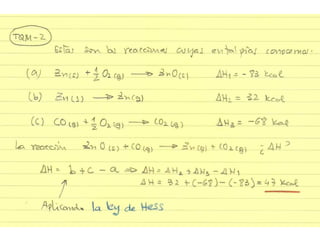 TQM-2
Estas son las reacciones cuyas entalpías conocemos:
(a) Zn(s) + 1/2 O2(g) → ZnO(s) ΔH1 = -83 kcal
(b) Zn(s) → Zn(g) ΔH2 = 32 kcal
(c) CO(g) + 1/2 O2(g) → CO2(g) ΔH3 = -68 kcal
La reacción ZnO(s) + CO(g) → Zn(g) + CO2(g) ¿ΔH?
ΔH = b + c - a ⇒ ΔH = ΔH2 + ΔH3 - ΔH1
ΔH = 32 + (-68) - (-83) = 47 kcal
Aplicando la ley de Hess